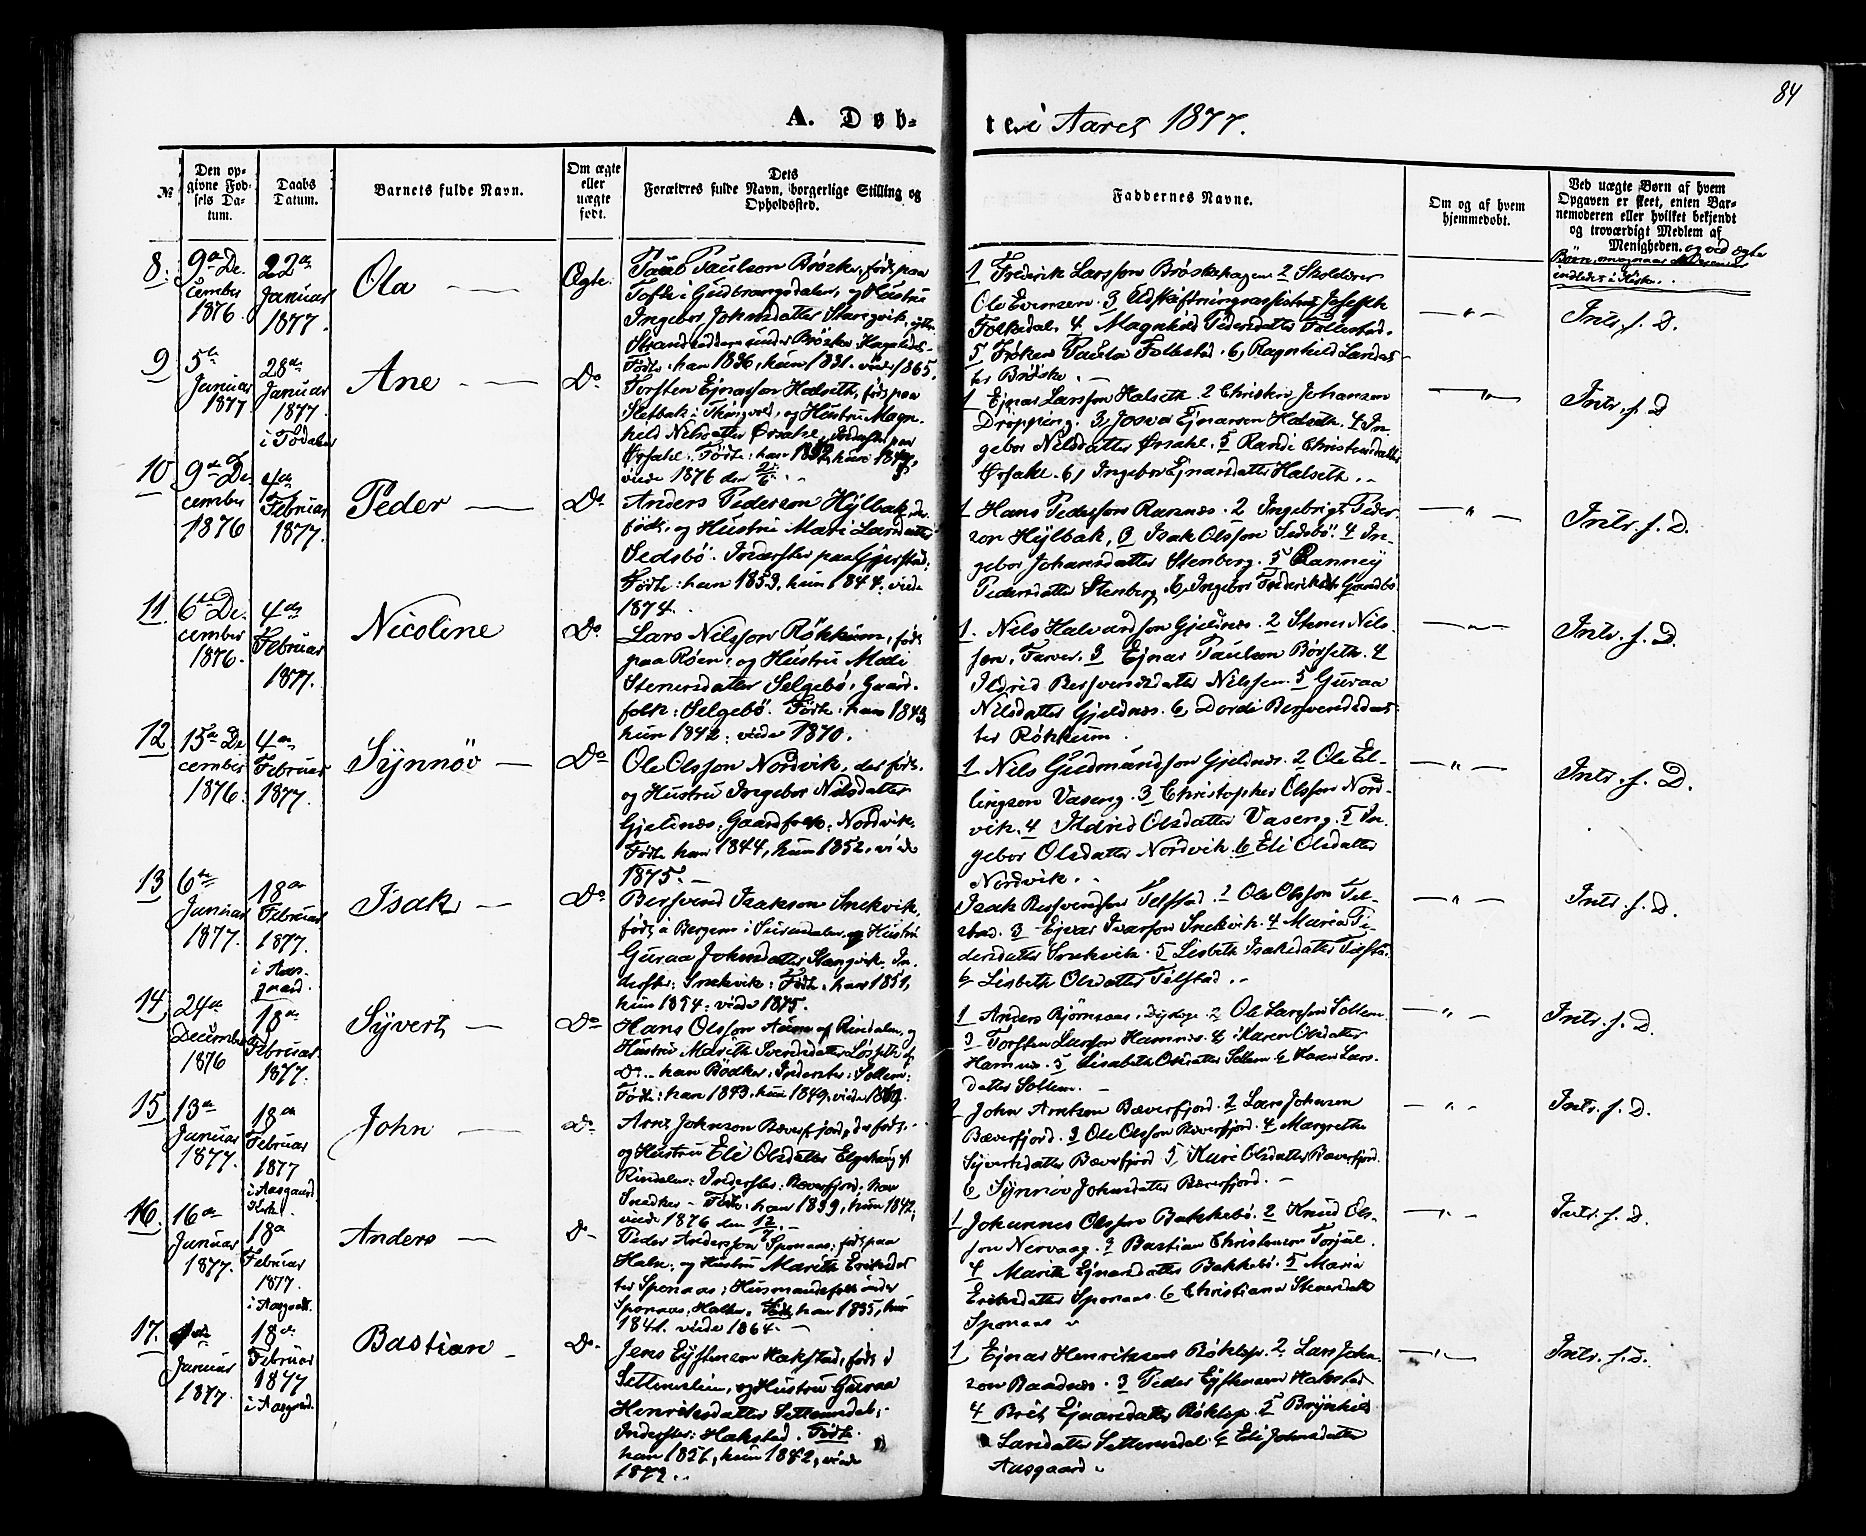 84
A. Døb-
te i Aaret 1877.
№
Den op-
givne Fød-
sels Da-
tum.
Daabs
Datum.
Barnets fulde Navn.
Om ægte
eller
uægte
født.
Dets
Forældres fulde Navn, borgerlige Stilling og
Opholdssted.
Faddernes Navne.
Om og af hvem
hjemmedøbt.
Ved uægte Børn af hvem
Opgaven er skeet, enten Bar-
nemoderen eller hvilket bekjendt
og troværdigt Medlem af
Menigheden. og ved ægte
8.
9de De-
cember
1876.
22de
Januar
1877.
Ola
Ægte.
Ingebor Johnsdatter Stangvik,
Fødte: han 1836, hun 1831. viede 1865.
1 Frederik Larsson Brøskehagen 2 Skolelærer
Ole Evensen. 3 Udskiftningsassistent Joseph
Folkedal. 4 Magnhild Pedersdatter Follestad.
5 Frøken Paula Follestad. 6, Ragnhild Larsdat-
ter Brøske.
Intr. f. D.
9
5te
Januar
1877
28de
Januar
1877.
i Tødalen
Ane
Do
Torsten Ejnarsson Halseth, født paa
viede 1876 den
1 Ejnar Larsson Halseth. 2 Christen Johansen
Drøpping. 3, Josva Ejnarson Halseth. 4 In-
gebor Nilsdatter Ørsahl. 5 Randi Christensdatter
Ørsahl. 6, Ingebor Ejnarsdatter Halseth.
Intr. f. D
10
9de De
cember
1876
4de
Februar
1877.
Peder
Do
Anders Pederson Hylbak, der
født, og Hustru Mari Larsdatter
Sedsbö. Inderster paa Gjerstad;
Fødte: han 1853, hun 1844. viede
1874.
1 Hans Pedersson Rannæs. 2 Ingebrigt Peder-
son Hylbak, 3 Isak Olsson Sedsbö. 4 In-
gebor Johansdatter Stenberg. 5 Ranney
Pedersdatter Stenberg. 6,
Intr. f. D.
11
6te De-
cember
1876.
4de
Februar
1877.
Nicoline
Do
Lars Nilsson Røkkum, født
paa Røen, og Hustru Modi
Stenersdatter Selgebö, Gaard-
folk: Selgebö. Fødte: han 1843,
hun 1842: viede 1870.
1. Nils Halvardson Gjeldnes. 2 Stener Nils-
sen, Farver. 3 Ejnar Paulson Børseth. 4
Ildrid Bersvendsdatter Nilssen. 5 Guraa
Nilsdatter Gjeldnes. 6, Dordi Bersvendsdat-
ter Røkkum.
Intr. f. D.
12
15de De
cember
1876.
4de
Februar
1877.
Synnöv
Do
Ole Olsson Nordvik, der født,
og Hustru Ingebor Nilsdatter
Gjeldnes, Gaardfolk: Nordvik.
Fødte han 1844, hun 1852, viede
1875.
1 Nils Gudmundson Gjeldnes. 2 Ole El-
lingson Vaseng. 3 Christopher Olsson Nord-
vik. 4 Ildrid Olsdatter Vaseng. 5 In-
gebor Olsdatter Nordvik. 6 Eli Olsdatter
Nordvik.
Intr. f. D.
13
6te
Januar
1877.
18de
Februar
1877.
i Aas-
gaard.
Isak
Do
Bersvend Isakson Snekvik,
født a Bergem i Surendalen, og Hustru
Guraa Johnsdatter Stangvik. In-
derster: Snekvik: Fødte: han 1851,
hun 1854: viede 1875.
Isak Bersvendson Telstad. 2 Ole Olsson Tel-
stad. 3 Ejvar Ivarson Snekvik. 4 Maria Pe-
dersdatter Snekvik. 5 Lisbeth Isaksdatter Telstad.
6 Lisbeth Olsdatter Telstad.
Intr. f. D.
14
24de
December
1876
18de
Februar
1877.
Syvert
Do
Hans Olsson Aune af Rindalen, og
Do. han Bødker: Inderster: Sollem:
Fødte: han 1843, hun 1849, viede
1 Anders Bjørnaas, 2 Ole Larsson Sollem.
3 Torsten Larsson Hamnes. 4 Karen Olsdatter
Hamnes. 5 Elisabeth Olsdatter Sollem. 6 Karen Lars-
datter Sollem.
Intr. f. D.
15
13de
Januar
1877.
18de
Februar
1877
i Aasgaard
Kirke.
John
Do
Arnt Johnson Bæverfjord, der født,
og Hustru Eli Olsdatter Elgshaug af
Rindalen: Inderster: Bæverfjord. han
Snedker. Fødte: han 1839, hun 1842,
viede 1876 den
1 John Arntson Bæverfjord. 2 Lars Johnson
Bæverfjord. 3 Ole Olsson Bæverfjord. 4 Margrethe
Syvertsdatter Bæverfjord 5 Kari Olsdatter Bæverfjord.
6 Synnöv Johnsdatter Bæverfjord.
Intr. f. D.
16.
16de
Januar
1877.
18de
Februar
1877.
i Aasgaard.
Anders
Do
Peder Andersson Sponaas; født paa
Halse, og Hustru Marith Eriksdat
ter Sponaas; Husmandsfolk under
Sponaas: Halse. Fødte han 1835, hun
1841. viede 1864.
1 Johannes Olsson Bakkebö. 2 Knud Ols-
son Nervaag. 3 Bastian Christensen Torjul.
4 Marith Ejnarsdatter Bakkebö. 5 Maria
Eriksdatter Sponaas. 6 Christiana Stenersdatter
Sponaas
Intr. f. D.
17.
Januar
1877.
18de
Februar
1877
i Aasgaard.
Bastian
Do
Jens Eystenson Hakstad, født i
Settemslien, og Hustru Guraa
Henriksdatter Settemsdal;
Inderster: Hakstad. Fødte.
1 Ejnar Henrikson Røklep. 2 Lars John-
son Baadnes. 3 Peder Eystenson Hakstad
4 Brit Ejnarsdatter Røklep. 5 Brynhild
Larsdatter Settemsdal 6 Eli Johnsdatter
Aasgaard.
Intr. f. D.